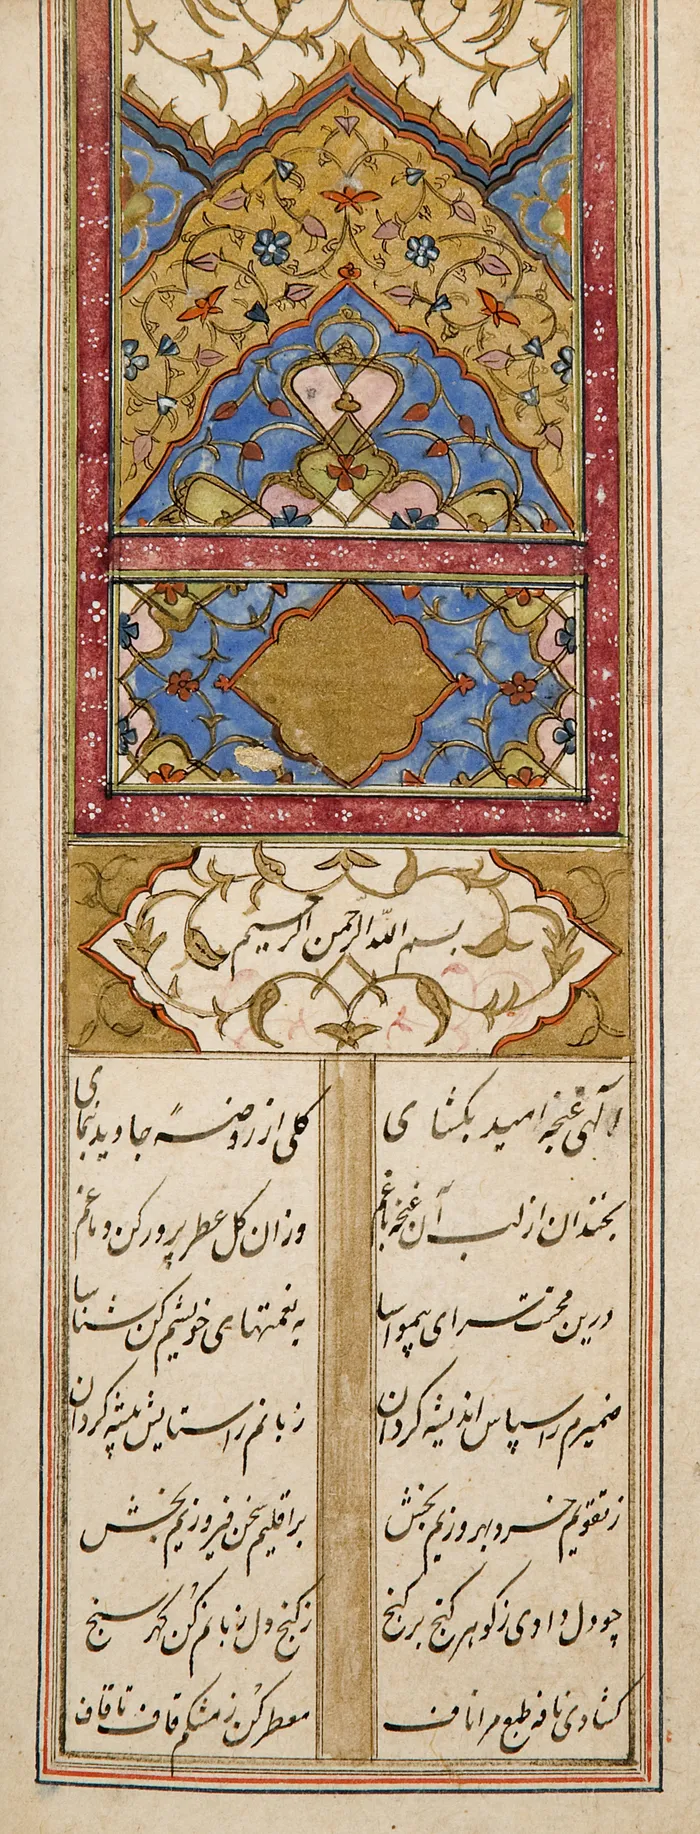 بسم الله الرحمن الرحیم
الهی غنچه امید بکشای گلی از روضهٔ جاوید بنمای
بخندان از لب آن غنچه باغم وزان گل عطر پرور کن دماغم
درین محنت سرای بی مواسا به نعمتهای خویشم کن شناسا
ضمیرم را سپاس اندیشه گردان زبانم را ستایش پیشه گردان
ز تقویم خرد بهروزیم بخش بر اقلیم سخن فیروزیم بخش
چو دل دادی ز گوهر گنج بر گنج ز گنج دل زبانم کن گهر سنج
کشادی نافه طبع مرا ناف معطر کن ز مشکم قاف تا قاف